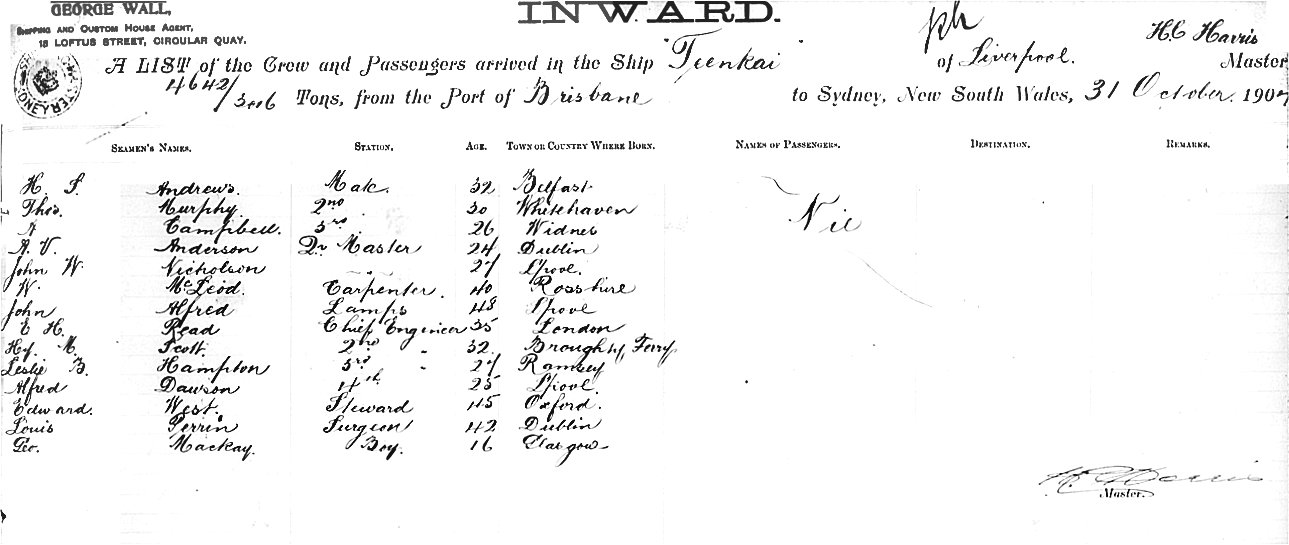 GEORGE WALL,
SHIPPING AND CUSTOM HOUSE AGENT,
18 LOFTUS STREET, CIRCULAR QUAY.
INWARD.
H.C Harris
A LIST of the Crew and Passengers arrived in the Ship "Teenkai" of Liverpool. Master
4642/3006 Tons, from the Port of Brisbane to Sydney, New South Wales, 31 October 1907
SEAMEN'S NAMES. STATION. AGE. TOWN OR COUNTRY WHERE BORN. NAMES OF PASSENGERS. DESTINATION. REMARKS.
H. S. Andrews. Mate. 32 Belfast
Thos. Murphy. 2nd 30 Whitehaven Nil
A Campbell. 3rd 26 Widnes
A. V. Anderson Qr Master 24 Dublin
John W. Nicholson " 27 L'pool.
W. McLeod. Carpenter. 40 Rosshire
John Alfred Lamps 48 L'pool
E H. Read Chief Engineer 35 London
Hy. M. Scott. 2nd " 32. Broughty Ferry
Leslie B. Hampton 3rd " 27 Ramsey
Alfred Dawson 4th 25 L'pool.
Edward. West. Steward 45 Oxford.
Louis Perrin Surgeon 42 Dublin
Geo. Mackay. Boy. 16 Glasgow
H C Harris
Master.